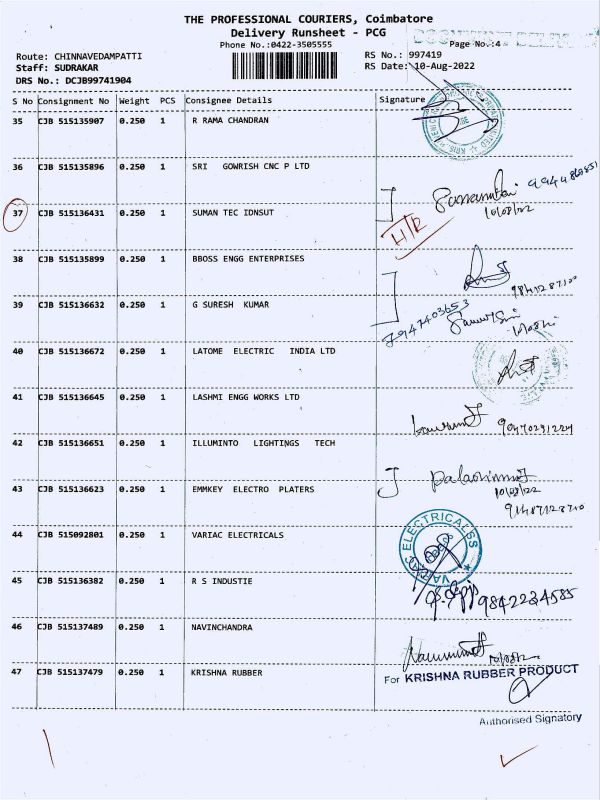 THE PROFESSIONAL COURIERS, Coimbatore
Delivery Runsheet - PCG
Phone No.:0422-3505555
Page No.:4
Route: CHINNAVEDAMPATTI
RS No.: 997419
Staff: SUDRAKAR
RS Date: 10-Aug-2022
DRS No.: DCJB99741904
S No Consignment No Weight PCS Consignee Details Signature
35 CJB 515135907 0.250 1 R RAMA CHANDRAN
36 CJB 515135896 0.250 1 SRI GOWRISH CNC P LTD
10/08/22
37 CJB 515136431 0.250 1 SUMAN TEC IDNSUT
H/R
38 CJB 515135899 0.250 1 BBOSS ENGG ENTERPRISES
39 CJB 515136632 0.250 1 G SURESH KUMAR
7947403653
40 CJB 515136672 0.250 1 LATOME ELECTRIC INDIA LTD
41 CJB 515136645 0.250 1 LASHMI ENGG WORKS LTD
42 CJB 515136651 0.250 1 ILLUMINTO LIGHTINGS TECH
43 CJB 515136623 0.250 1 EMMKEY ELECTRO PLATERS
10/08/22
44 CJB 515092801 0.250 1 VARIAC ELECTRICALS
45 CJB 515136382 0.250 1 R S INDUSTIE
9842234585
46 CJB 515137489 0.250 1 NAVINCHANDRA
47 CJB 515137479 0.250 1 KRISHNA RUBBER
For KRISHNA RUBBER PRODUCT
Authorised Signatory